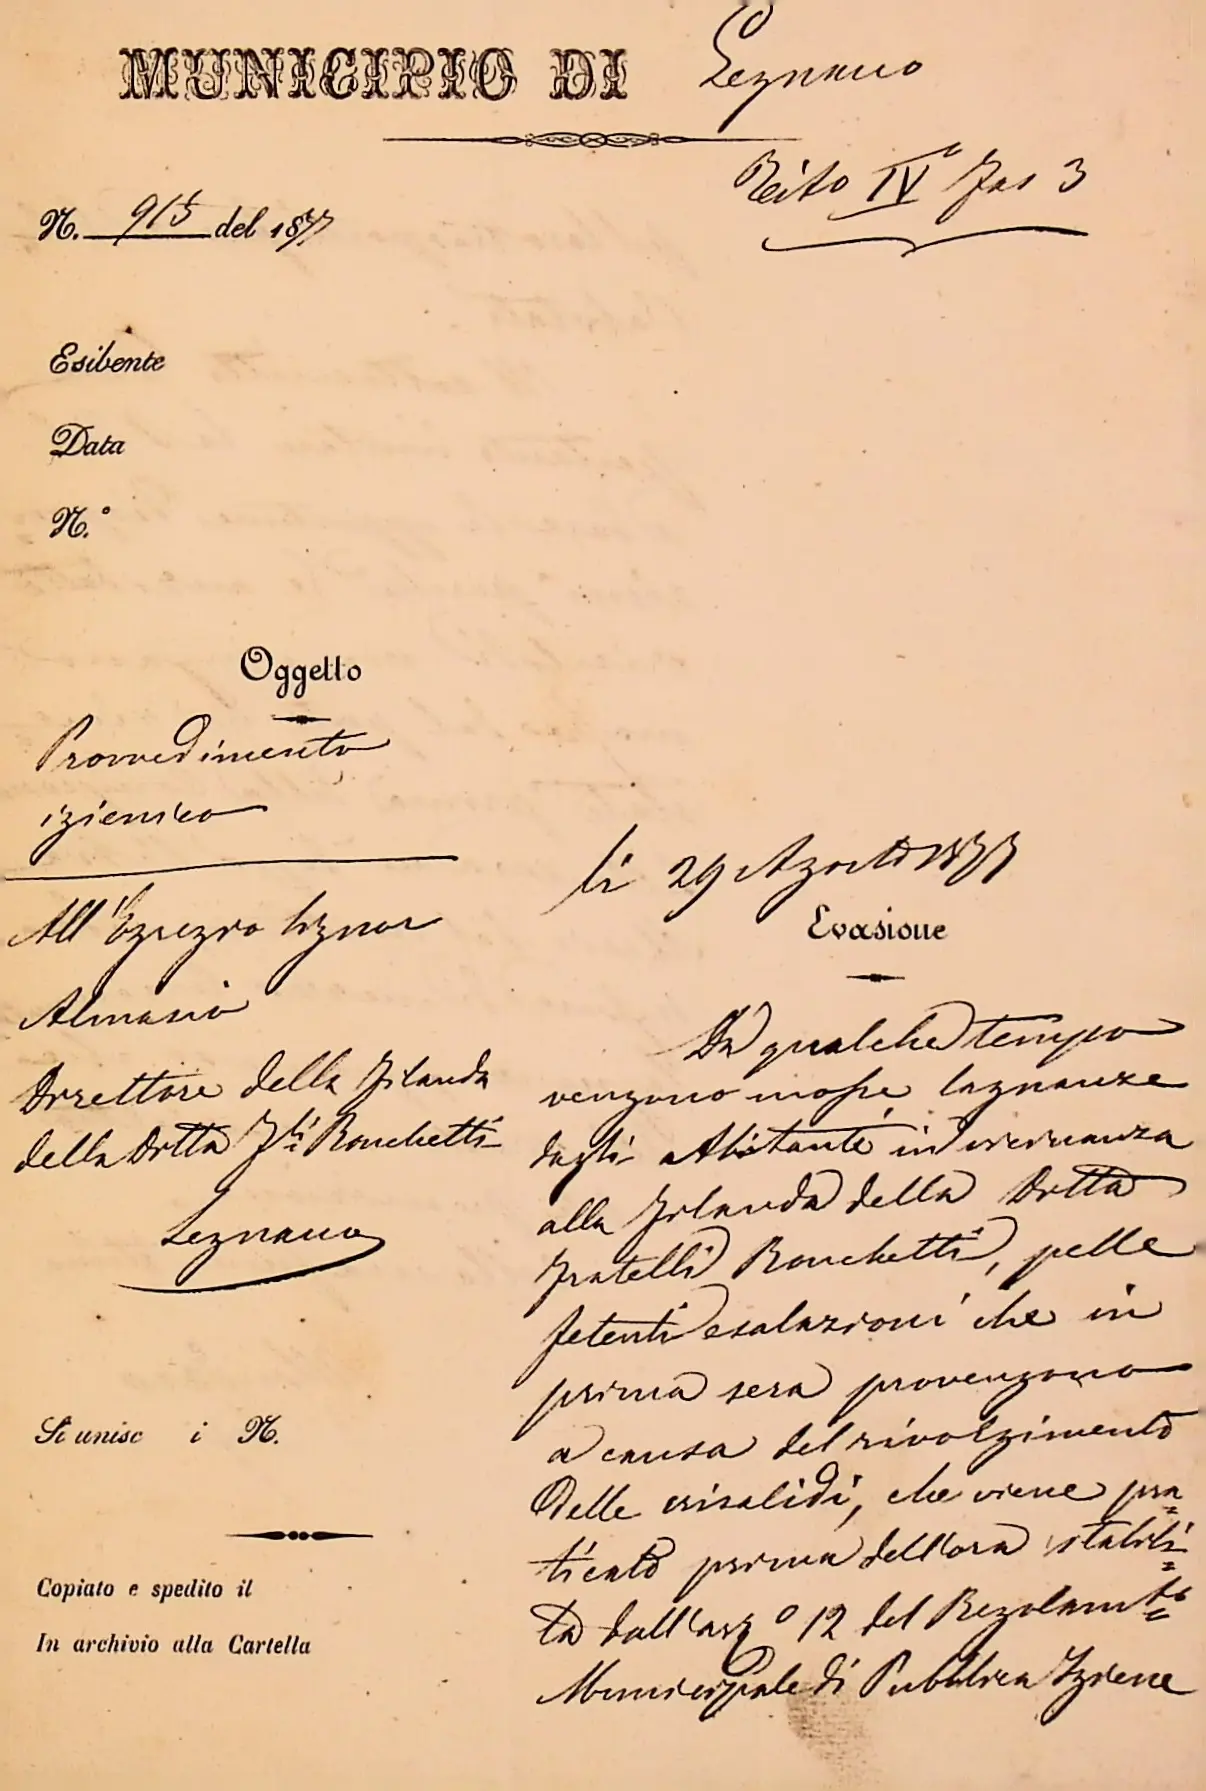 MUNICIPIO DI Legnano
Tito IV° Fas 3
N. 915 del 1877
Esibente
Data
N.°
Oggetto
Provvedimento
igienico
All'Egregio Signor
Almasio
Direttore della Filanda
della Ditta F.lli Ronchetti
Legnano
Si unisc i N.
Copiato e spedito il
In archivio alla Cartella
li 29 Agosto 1877
Evasione
Da qualche tempo
vengono mosse lagnanze
dagli abitanti in vicinanza
alla Filanda della Ditta
Fratelli Ronchetti, pelle
fetenti esalazioni che in
prima sera provengono
a causa del rivolgimento
delle crisalidi, che viene pra
ticato prima dell'ora stabili
ta dall'art° 12 del Regolamto
Municipale di Pubblica Igiene